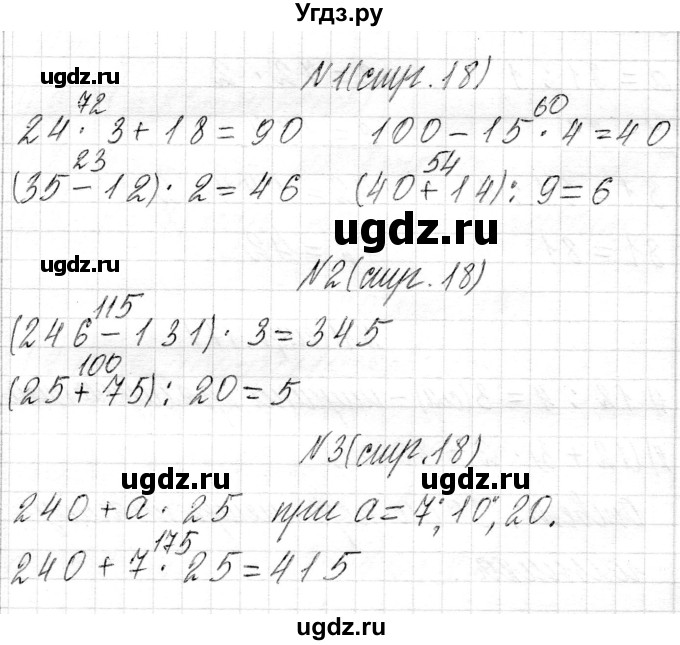 Угдз.ру
ugdz.ru
№1(стр. 18)
72
60
24 · 3 + 18 = 90 100 - 15 · 4 = 40
23
54
(35 - 12) · 2 = 46 (40 + 14) : 9 = 6
ugdz.ru
ugdz.ru
№2(стр. 18)
115
(246 - 131) · 3 = 345
100
(25 + 75) : 20 = 5
№3(стр. 18)
ugdz.ru
ugdz.ru
240 + a · 25 при a = 7; 10; 20.
175
240 + 7 · 25 = 415
ugdz.ru